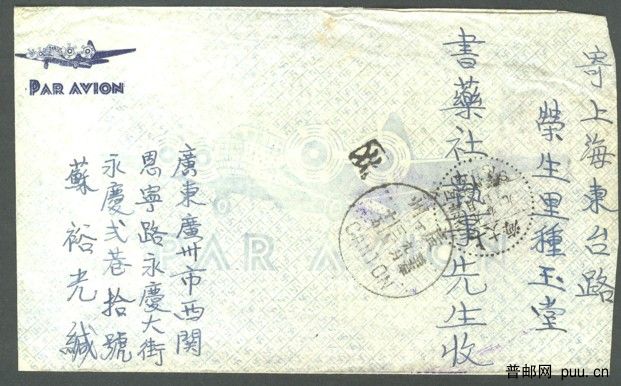 寄上海東台路
榮生里種玉堂
書藥社執事先生收
廣東廣州市西關
恩寧路永慶大街
永慶弍巷拾號
蘇裕光緘
PAR AVION
PAR AVION
CANTON
普邮网 puu.cn